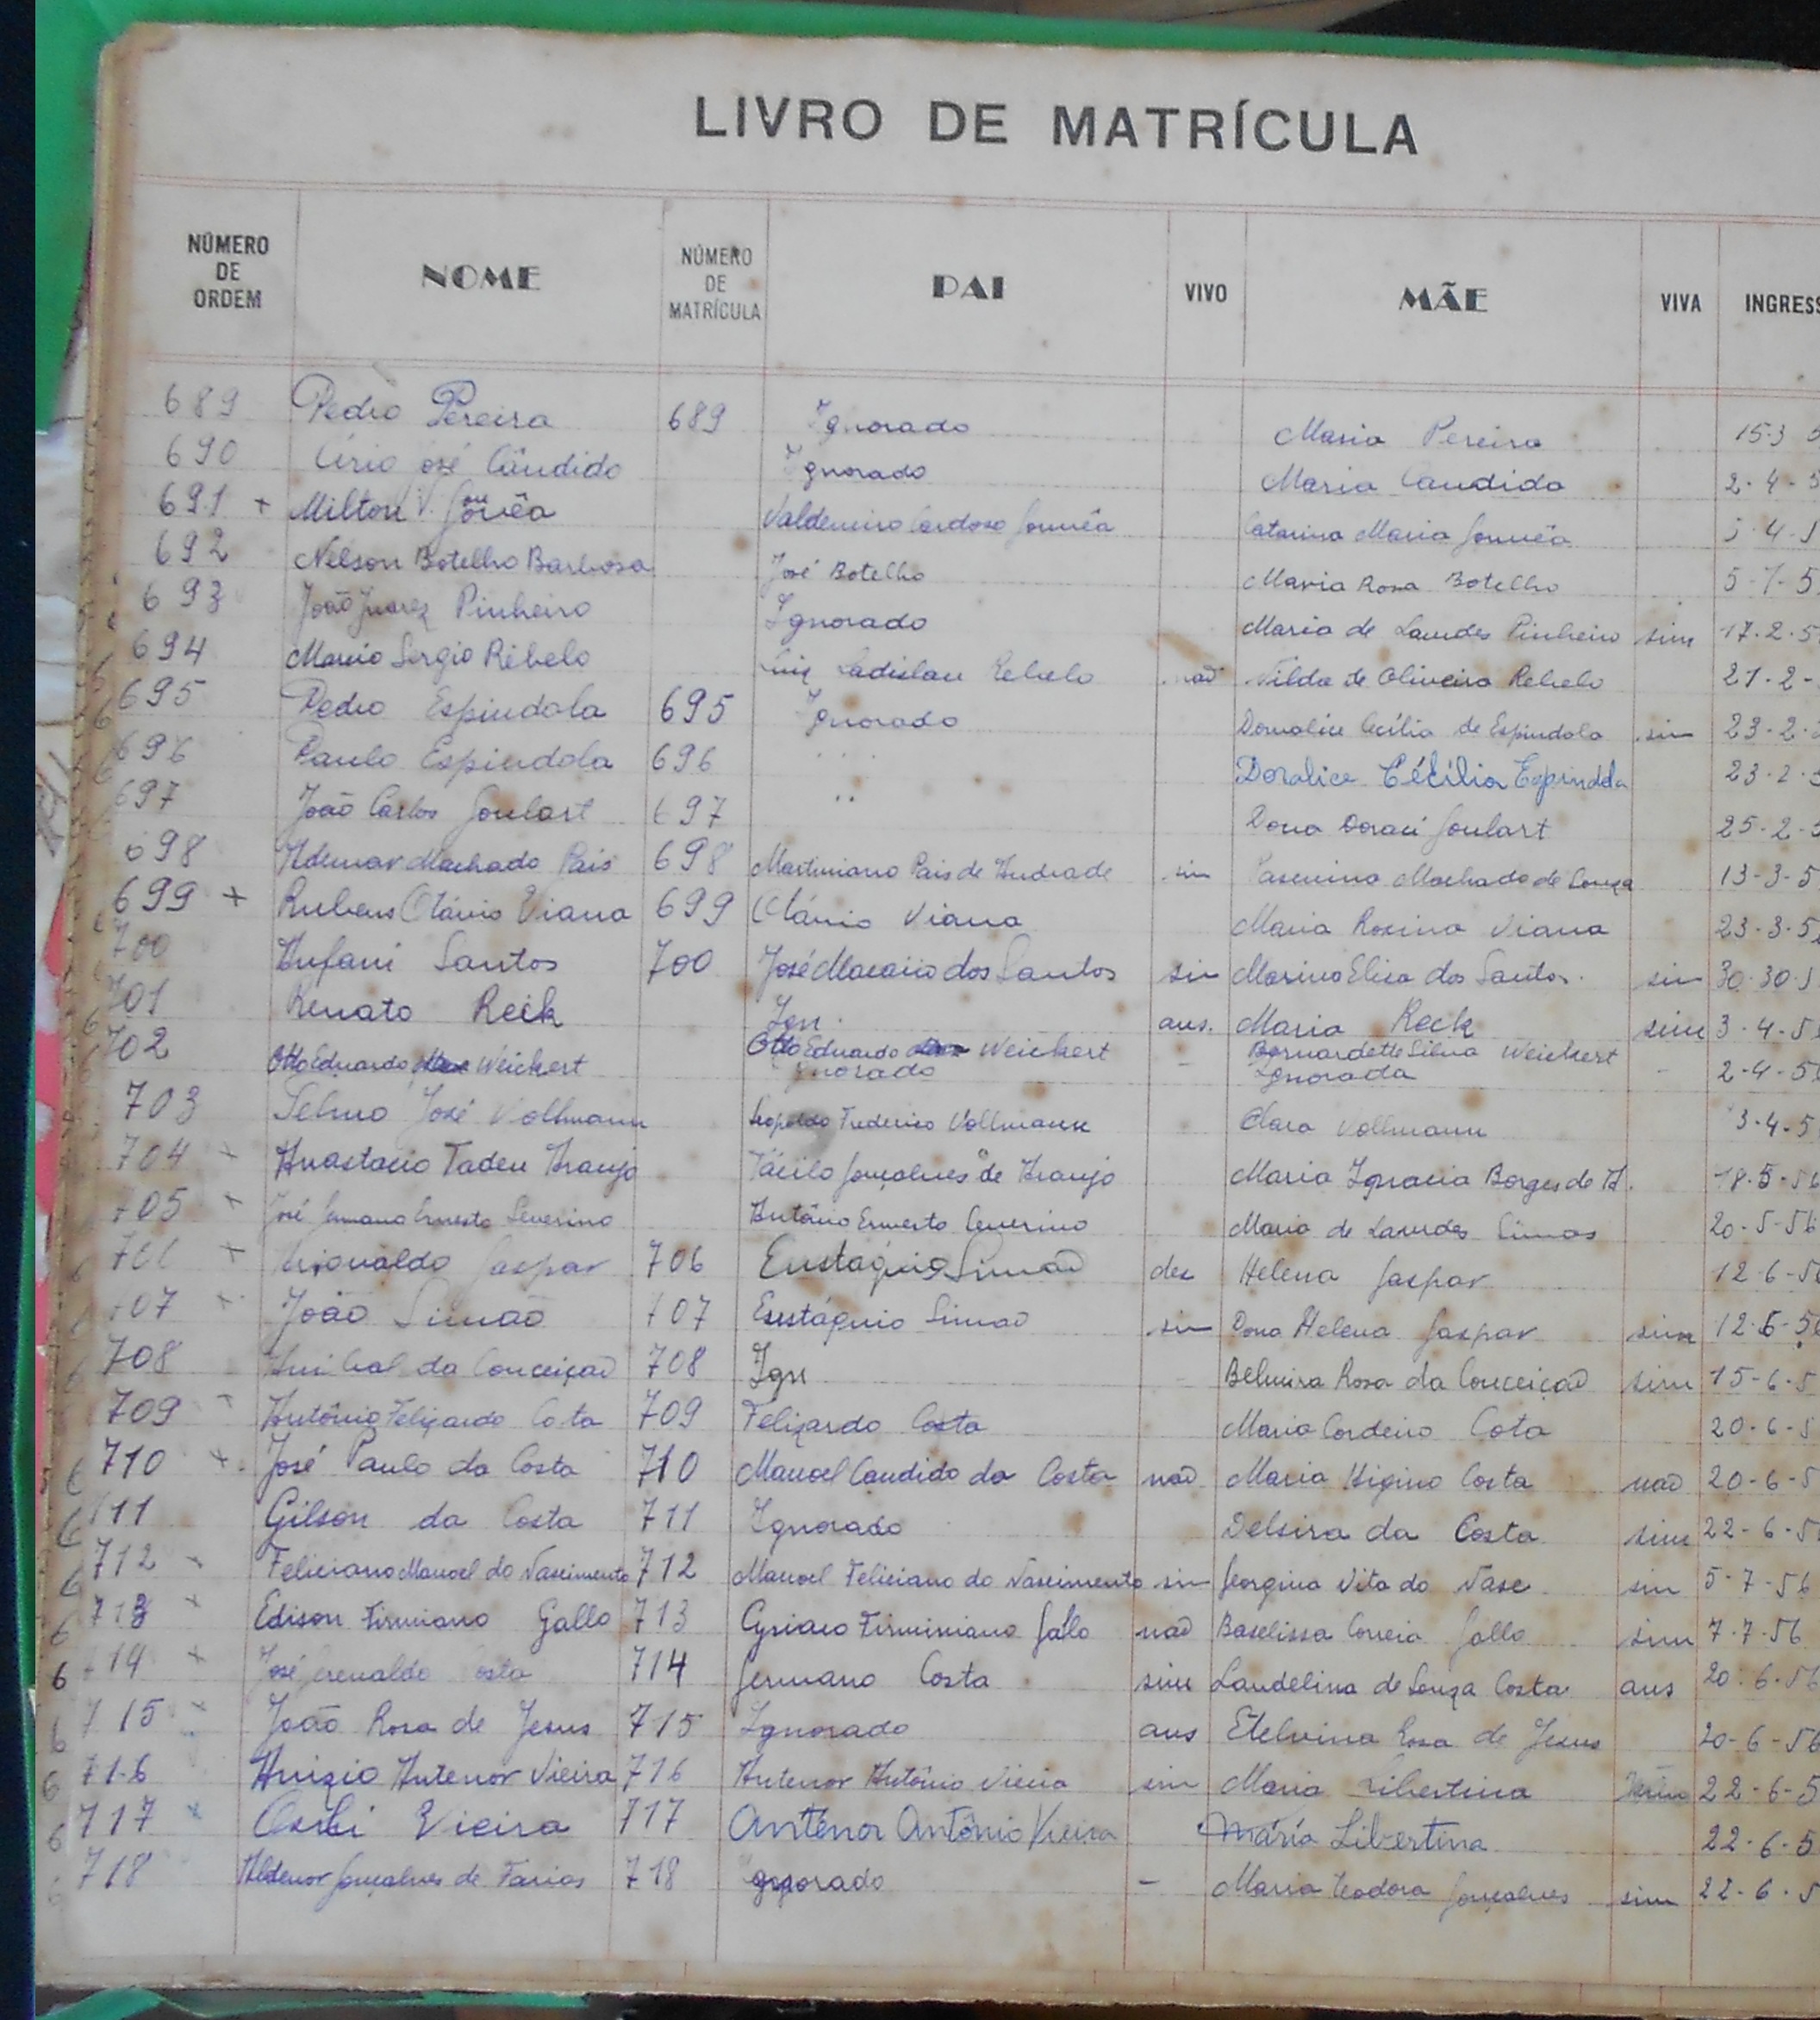 LIVRO DE MATRÍCULA
NÚMERO DE ORDEM NOME NÚMERO DE MATRÍCULA PAI VIVO MÃE VIVA INGRESS
689 Pedro Pereira 689 Ignorado Maria Pereira 15-3
690 Lírio José Cândido Ignorado Maria Candida 2-4-5
691 + Milton V. Gouvêa Valdemiro Cardoso Gouvêa Catarina Maria Gouvêa 5-4-5
692 Nelson Botelho Barbosa José Botelho Maria Rosa Botelho 5-7-5
693 João Juarez Pinheiro Ignorado Maria de Lourdes Pinheiro sim 17-2-5
694 Marcio Sergio Rebelo Luiz Ladislau Rebelo não Nilda de Oliveira Rebelo 21-2-
695 Pedro Espindola 695 Ignorado Doralice Cecília de Espindola sim 23-2-
696 Paulo Espindola 696 " Doralice Cécília Espindola 23-2-5
697 João Carlos Goulart 697 " Dona Doraci Goulart 25-2-5
698 Ademar Machado Pais 698 Martiniano Pais de Andrade sim Machado de Souza 13-3-5
699 + Rubens Otávio Viana 699 Otávio Viana Maria Rosina Viana 23-3-5
700 Santos 700 José Macario dos Santos sim Elisa dos Santos sim 30-30-5
701 Renato Reck Ign. aus. Maria Reck sim 3-4-5
702 Otto Eduardo Weickert Otto Eduardo Weickert - Bernardette Silva Weickert - 2-4-56
Ignorado Ignorada
703 Selmo José Vollmann Leopoldo Frederico Vollmann Clara Vollmann 3-4-5
704 + Anastacio Tadeu Araujo Tácilo Gonçalves de Araujo Maria Ignacia Borges de A. 18-5-56
705 + José Ernesto Severino Antônio Ernesto Ceverino Maria de Lourdes Simas 20-5-56
706 + Gaspar 706 Eustáquio Simão des Helena Gaspar 12-6-56
707 + João Simão 707 Eustáquio Simão sim Dona Helena Gaspar sim 12-6-56
708 Anibal da Conceição 708 Ign - Belmira Rosa da Conceição sim 15-6-5
709 + Antônio Felizardo Costa 709 Felizardo Costa Maria Cordeiro Cota 20-6-5
710 + José Paulo da Costa 710 Manoel Candido da Costa não Maria Higino Costa não 20-6-5
711 Gilson da Costa 711 Ignorado Delsira da Costa sim 22-6-5
712 + Feliciano Manoel do Nascimento 712 Manoel Feliciano do Nascimento sim Georgina Vita do Nasc sim 5-7-56
713 + Edison Firmiano Gallo 713 Cyriaco Firminiano Gallo não Baselissa Correia Gallo sim 7-7-56
714 + José Costa 714 Germano Costa sim Laudelina de Souza Costa aus 20-6-56
715 + João Rosa de Jesus 715 Ignorado aus Etelvina Rosa de Jesus 20-6-56
716 Anizio Antenor Vieira 716 Antenor Antônio Vieira sim Maria Libertina 22-6-5
717 + Osni Vieira 717 Antênor Antônio Vieira María Libertina 22-6-5
718 Aldenor Gonçalves de Farias 718 Ignorado - Maria Teodora Gonçalves sim 22-6-5